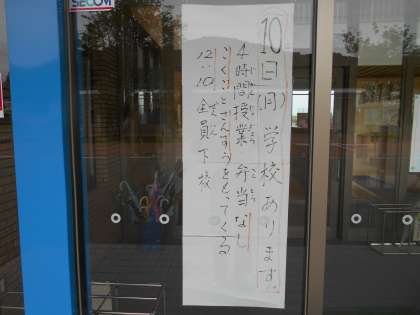 SECOM
10日(月)学校あります
4時間授業 弁当なし
こくごとさんすうをもってくる
12:10全員下校